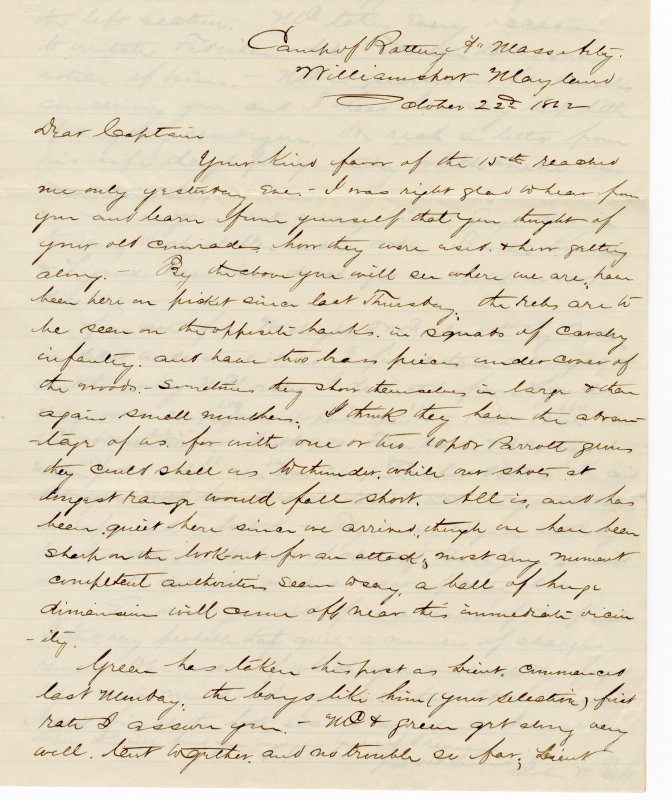 Camp of Battery "A" Mass Arty.
Williamsport Mayland
October 22d 1862
Dear Captain
Your kind favor of the 15th reached
me only yesterday Eve - I was right glad to hear from
you and learn from yourself that you thought of
your old comrades, how they were used. & how getting
along. - By the above you will see where we are, have
been here on picket since last Thursday, the rebs are to
be seen on the opposite banks. in squads of cavalry
infantry. and have two brass pieces under cover of
the woods. - Sometimes they show themselves in large & then
again small numbers. I think they have the advan
-tage of us for with one or two 10pdr Parrott guns
they could shell us to thunder, while our shots at
longest range would fall short. All is, and has
been, quiet here since we arrived, though we have been
sharp on the lookout for an attack, most any moment
competent authorities seem to say, a ball of huge
dimension will come off near this immediate vicin
-ity.
Green has taken his post as Lieut. commenced
last Monday. the boys like him (your selection) first
rate I assure you. - Mc & Green get along very
well. tent together. and no trouble so far, Lieut